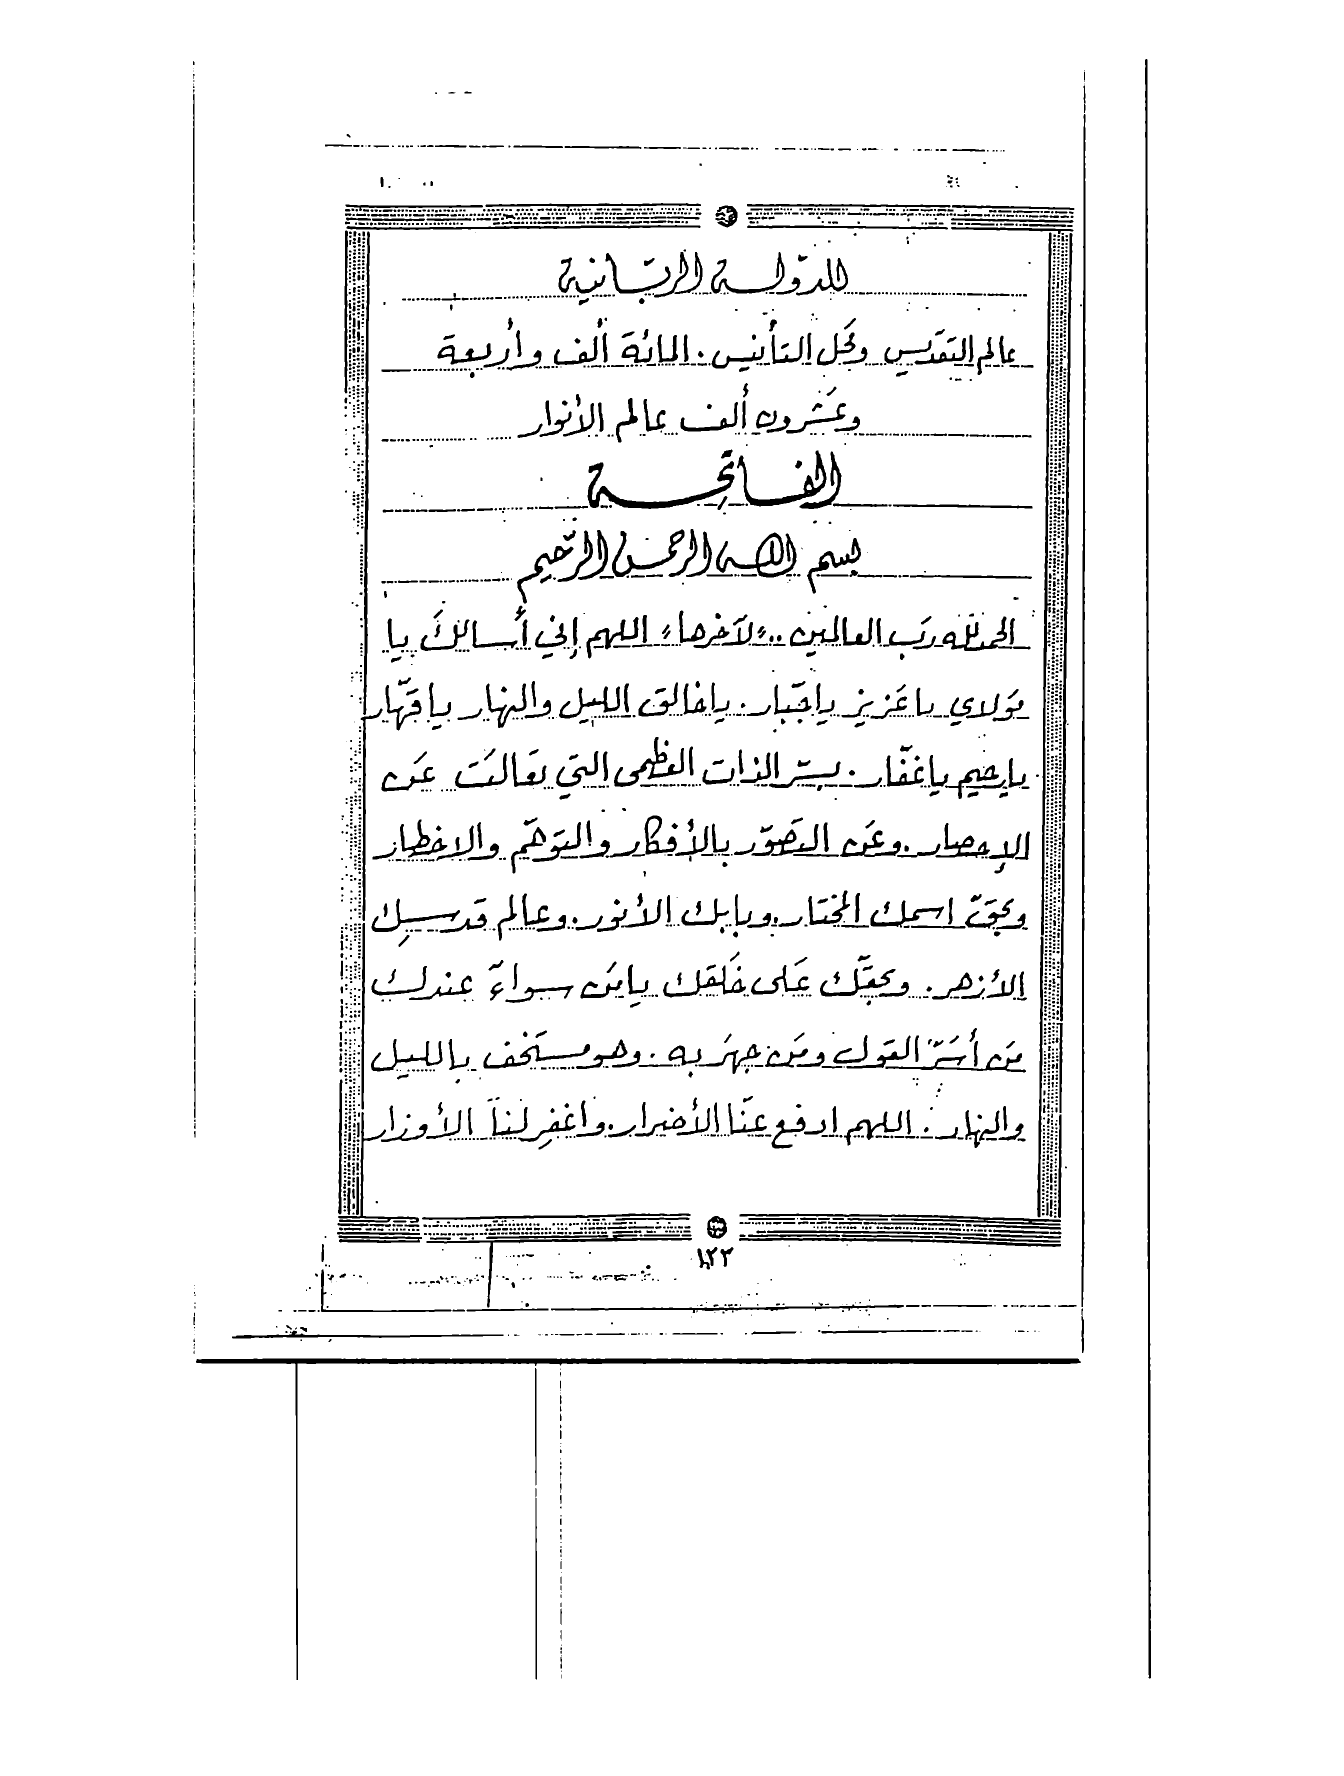 للدّولة الربّانية
عالم التقديس ومحل التأنيس. المائة ألف وأربعة
وعَشرون ألف عالم الأنوار
الفاتحة
بسم الله الرحمن الرّحيم
الحمدلله رَب العالمين.. «لآخرها» اللهم إني أسالكَ يا
مَولاي يا عَزيز ياجَبّار. ياخالق الليل والنهار ياقهّار
يارحيم ياغفّار. بسرّ الذات العظمى التي تعَالَت عَن
الإحصار. وعَن التصَوّر بالأفكار والتوهّم والاخطار
وبحَقّ اسمك المختار. وبابك الأنور. وعالم قدسِك
الأزهر. وبحقّك عَلى خَلقك يامَن سواءً عندك
مَن أسَرّ القول ومَن جهَر به. وهو مستَخف بالليل
والنهار. اللهم ادفع عنّا الأضرار. واغفِر لنا الأوزار
١٢٢